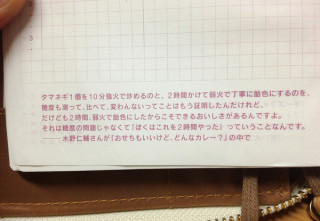 タマネギ1個を10分強火で炒めるのと、2時間かけて弱火で丁寧に飴色にするのを、
糖度も測って、比べて、変わんないってことはもう証明したんだけれど、
だけども2時間、弱火で飴色にしたからこそできるおいしさがあるんですよ。
それは糖度の問題じゃなくて「ぼくはこれを2時間やった」っていうことなんです。
──水野仁輔さんが『おせちもいいけど、どんなカレー?』の中で